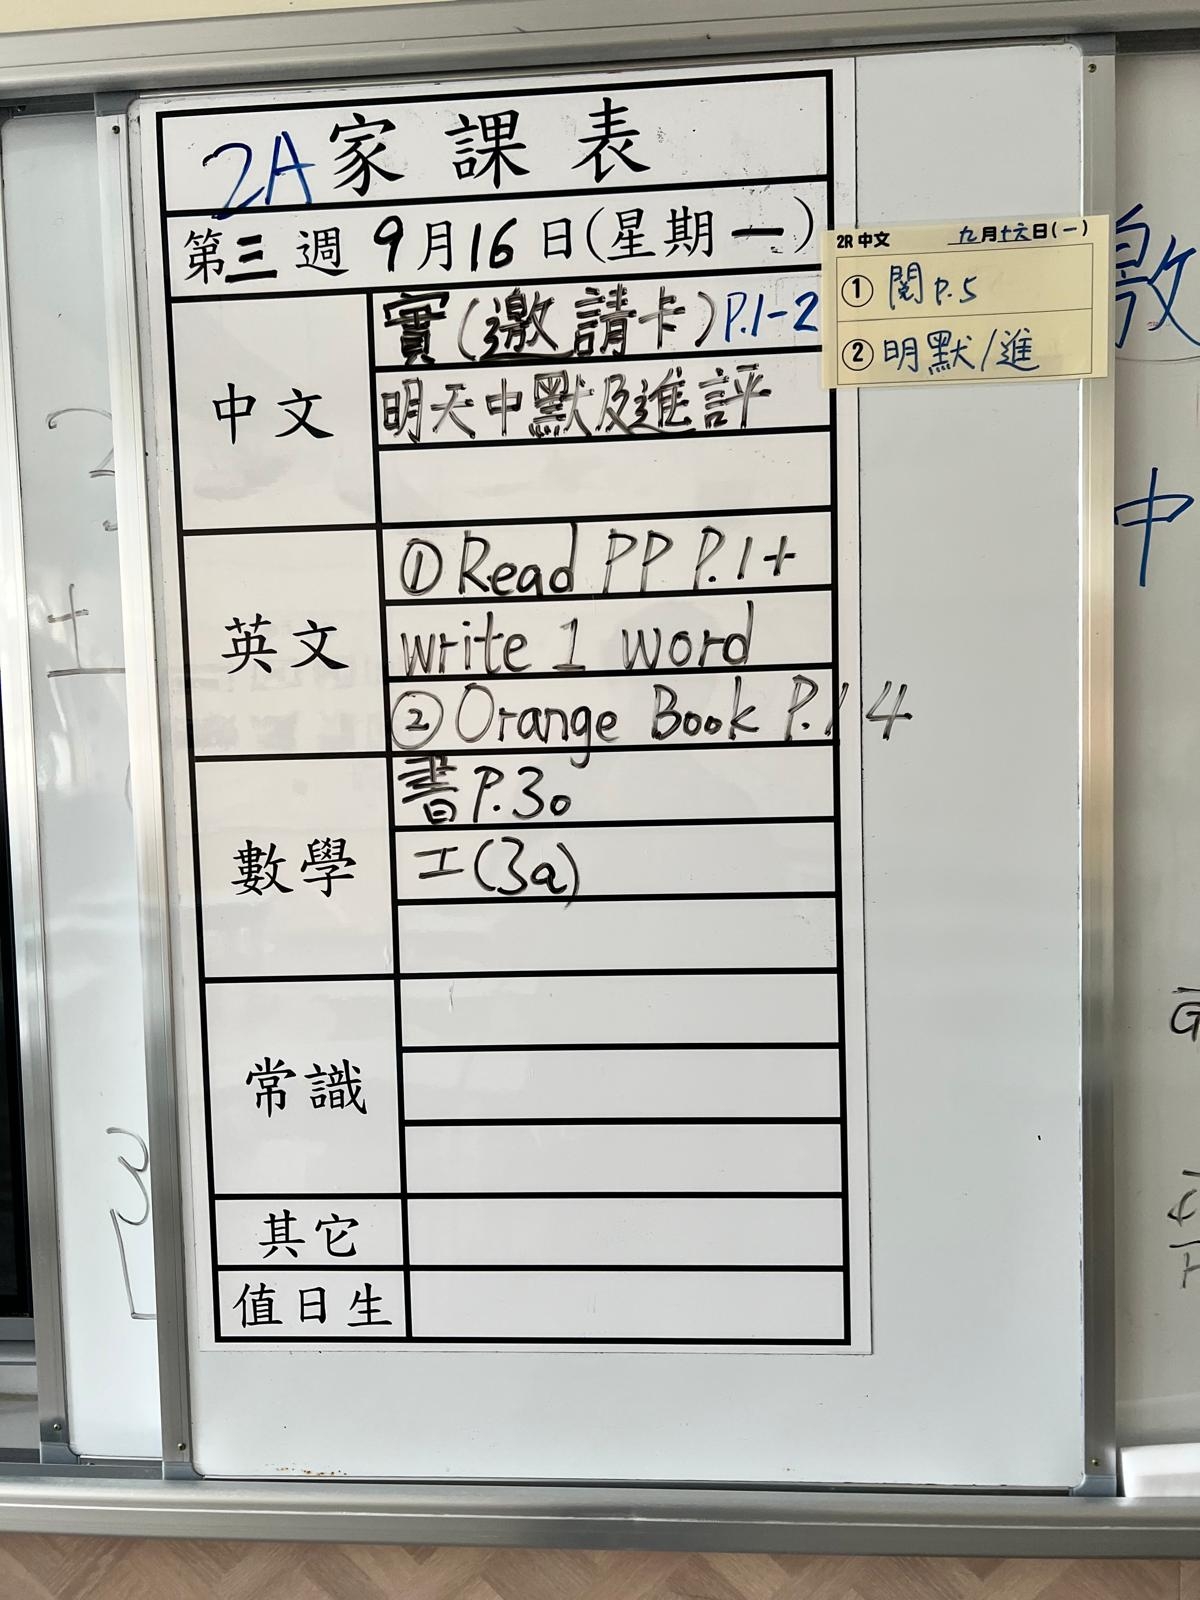 2A 家課表
第三週 9月16日(星期一)
中文
實(邀請卡)P.1-2
明天中默及進評
2R 中文 九月十六日(一)
① 閱 P.5
② 明默/進
英文
① Read PP P.1+
write 1 word
② Orange Book P.14
數學
書 P.30
工(3a)
常識
其它
值日生
邀
中